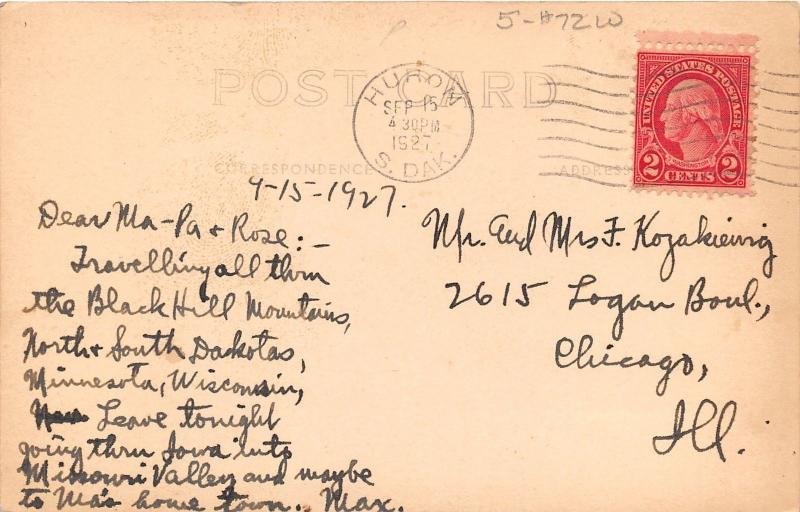 5-#72W
POST CARD
HURON
SEP 15
4 30PM
1927
S. DAK.
UNITED STATES POSTAGE
WASHINGTON
2 CENTS 2
CORRESPONDENCE
ADDRESS
9-15-1927.
Dear Ma-Pa & Rose:-
Travelling all thru
the Black Hill Mountains,
North & South Dackotas,
Minnesota, Wisconsin,
Leave tonight
going thru Iowa into
Missouri Valley and maybe
to Ma's home town. Max.
Mr. and Mrs F. Kozakiewig
2615 Logan Boul.,
Chicago,
Ill.